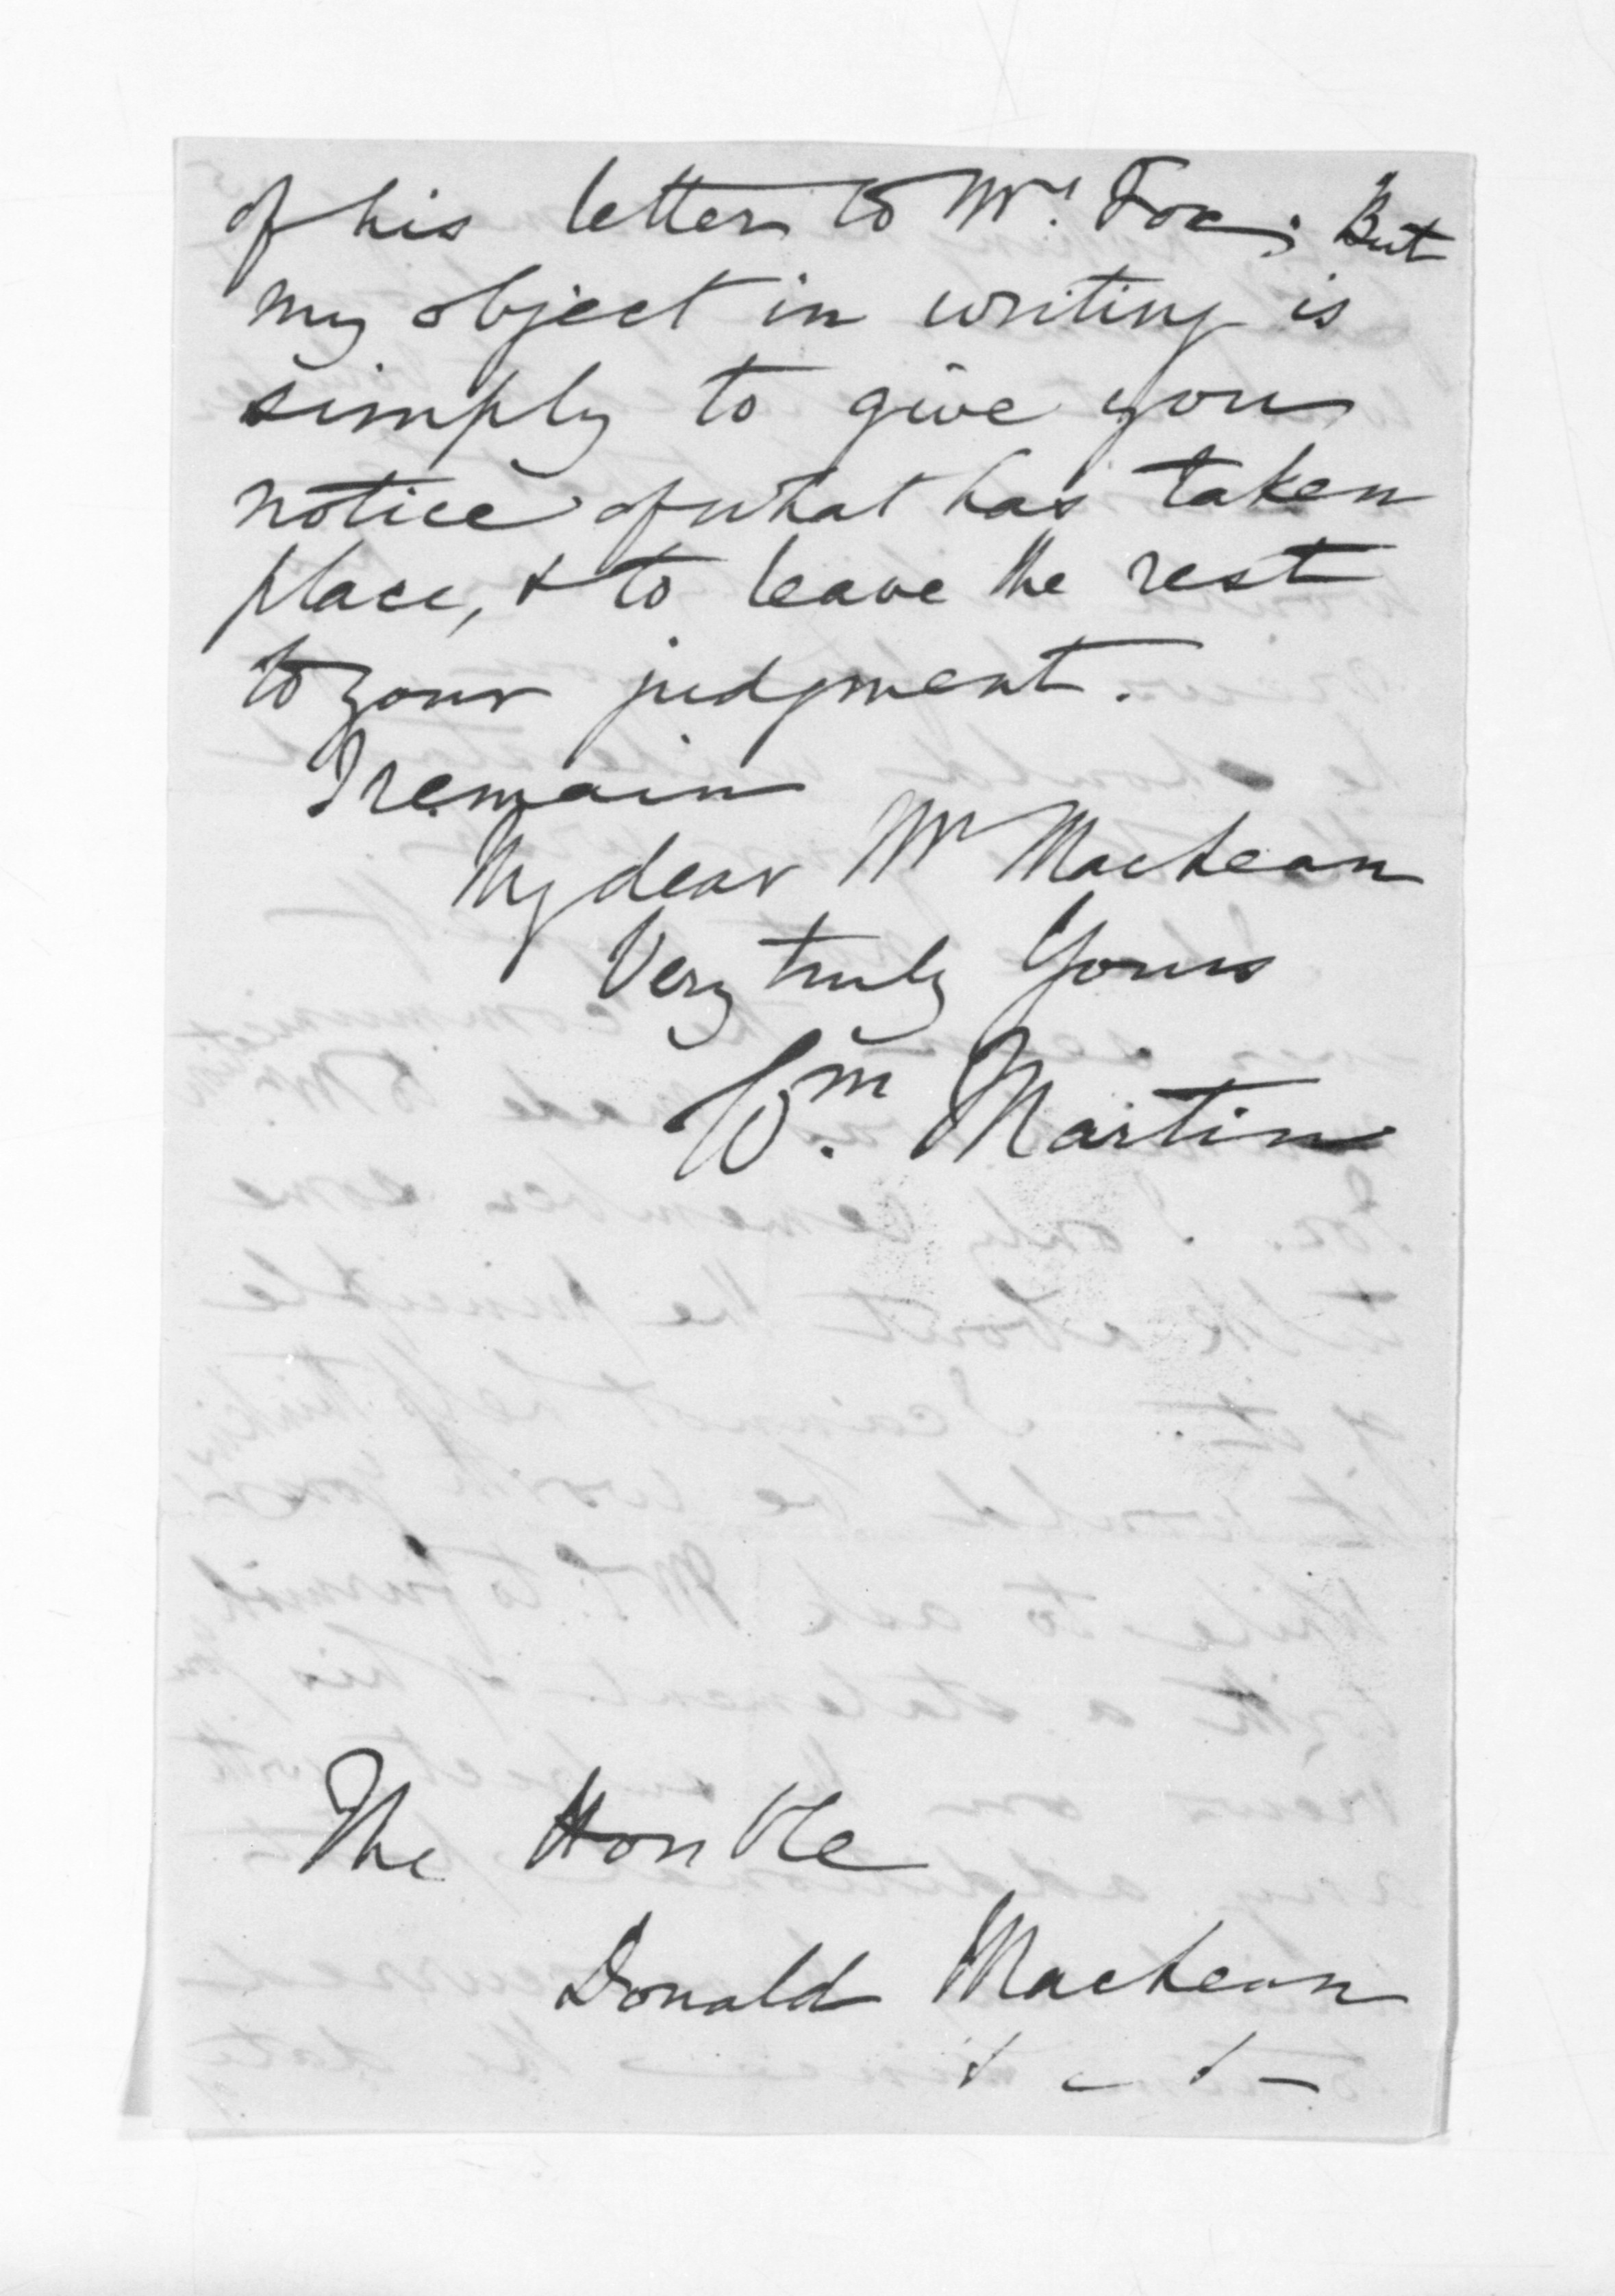 of his letter to Mr. Fox; But
my object in writing is
simply to give you
notice of what has taken
place, & to leave the rest
to your judgment.
I remain
My dear Mr MacLean
Very truly Yours
Wm. Martin
The Honble
Donald MacLean